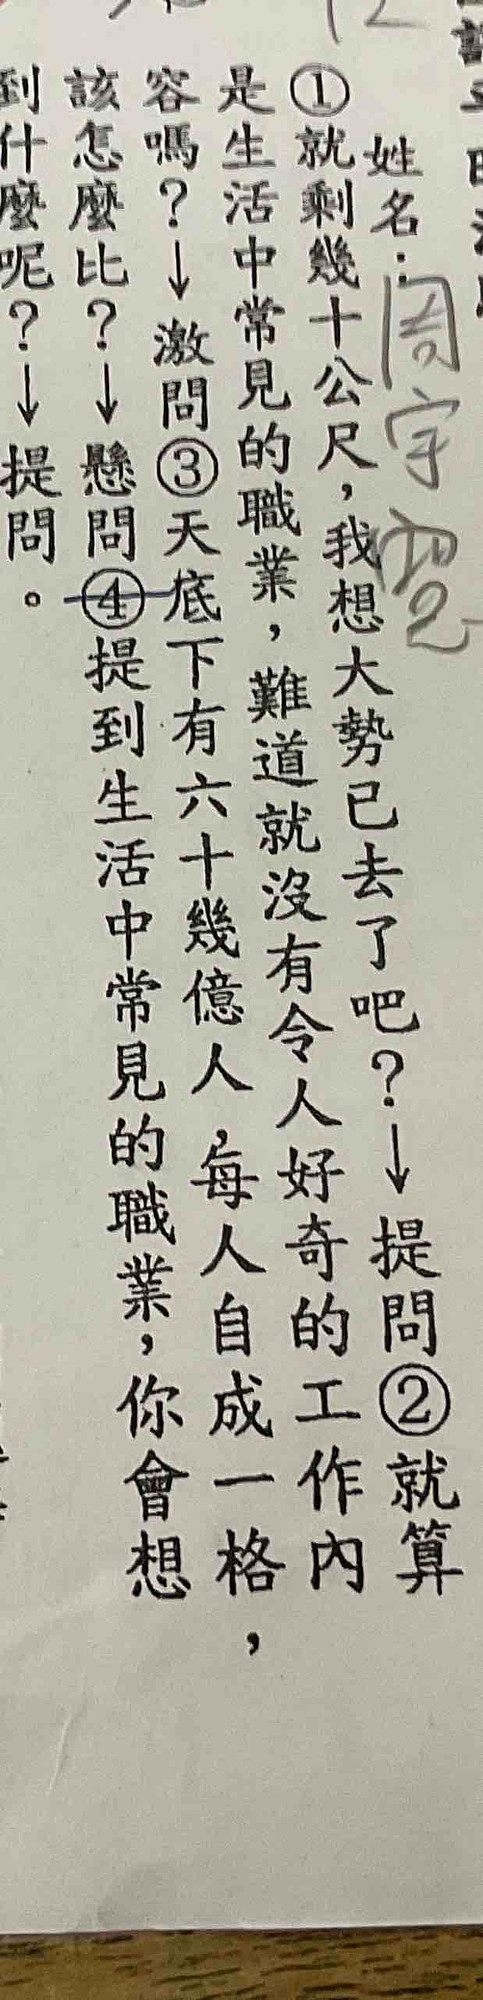 姓名:周宇
①就剩幾十公尺,我想大勢已去了吧?→提問②就算
是生活中常見的職業,難道就沒有令人好奇的工作內
容嗎?→激問③天底下有六十幾億人,每人自成一格,
該怎麼比?→懸問④提到生活中常見的職業,你會想
到什麼呢?→提問。